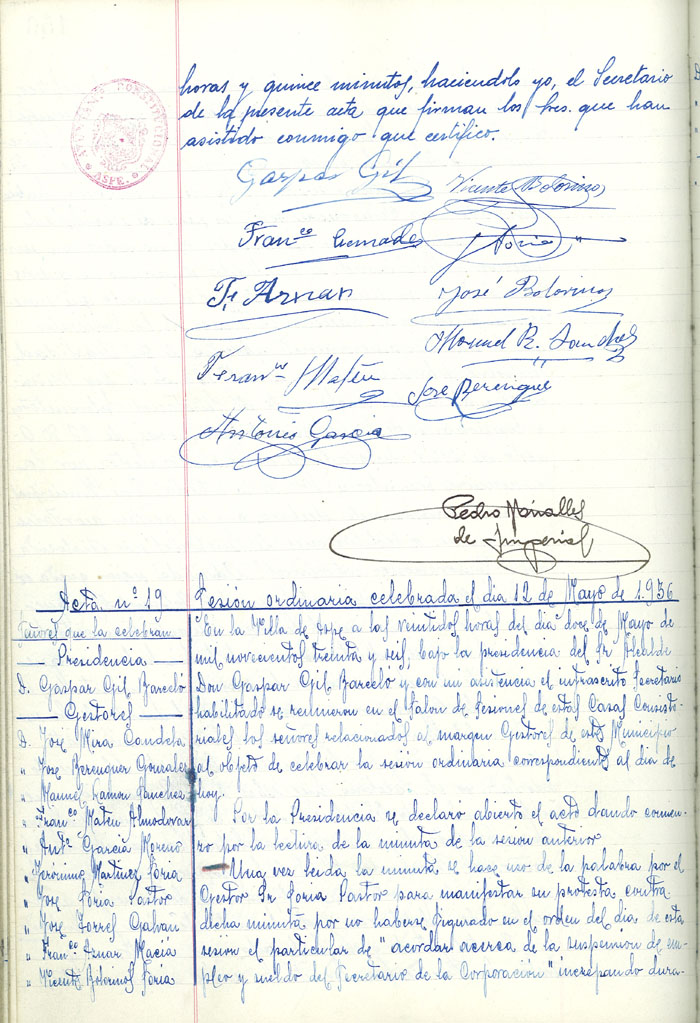 horas y quince minutos, haciendolo yo, el Secretario
de la presente acta que firman los Sres. que han
asistido conmigo que certifico.
AYUNTAMIENTO CONSTITUCIONAL
* ASPE. *
Gaspar Gil
Vicente Botorinos
Fran.co
Soria
Fr. Aznar
José Botorinos
Manuel R. Sanchez
Mateu
Jose Berenguer
Antonio Garcia
Pedro Miralles
de Imperial
Acta nº 19
Sesión ordinaria celebrada el dia 12 de Mayo de 1.936
Señores que la celebran
Presidencia
D. Gaspar Gil Barceló
Gestores
D. Jose Mira Candela
" Jose Berenguer Gonzalez
" Manuel Ramon Sanchez
" Fran.co Mateu Almodovar
" Ant.º Garcia Moreno
" Geronimo Martinez Soria
" Jose Soria Pastor
" Jose Torres Galvañ
" Fran.co Aznar Macia
" Vicente Botorinos Soria
En la Villa de Aspe a las veintidos horas del dia doce de Mayo de
mil novecientos treinta y seis, bajo la presidencia del Sr. Alcalde
Don Gaspar Gil Barceló y con mi asistencia el infrascrito Secretario
habilitado se reunieron en el Salon de Sesiones de estas Casas Consisto-
riales los señores relacionados al margen Gestores de este Municipio
al objeto de celebrar la sesión ordinaria correspondiente al dia de
hoy.
Por la Presidencia se declaró abierto el acto dando comien-
zo por la lectura de la minuta de la sesion anterior
Una vez leida la minuta se hace uso de la palabra por el
Gestor Sr. Soria Pastor para manifestar su protesta contra
dicha minuta por no haberse figurado en el orden del dia de esta
sesion el particular de "acordar acerca de la suspension de em-
pleo y sueldo del Secretario de la Corporación" increpando dura-